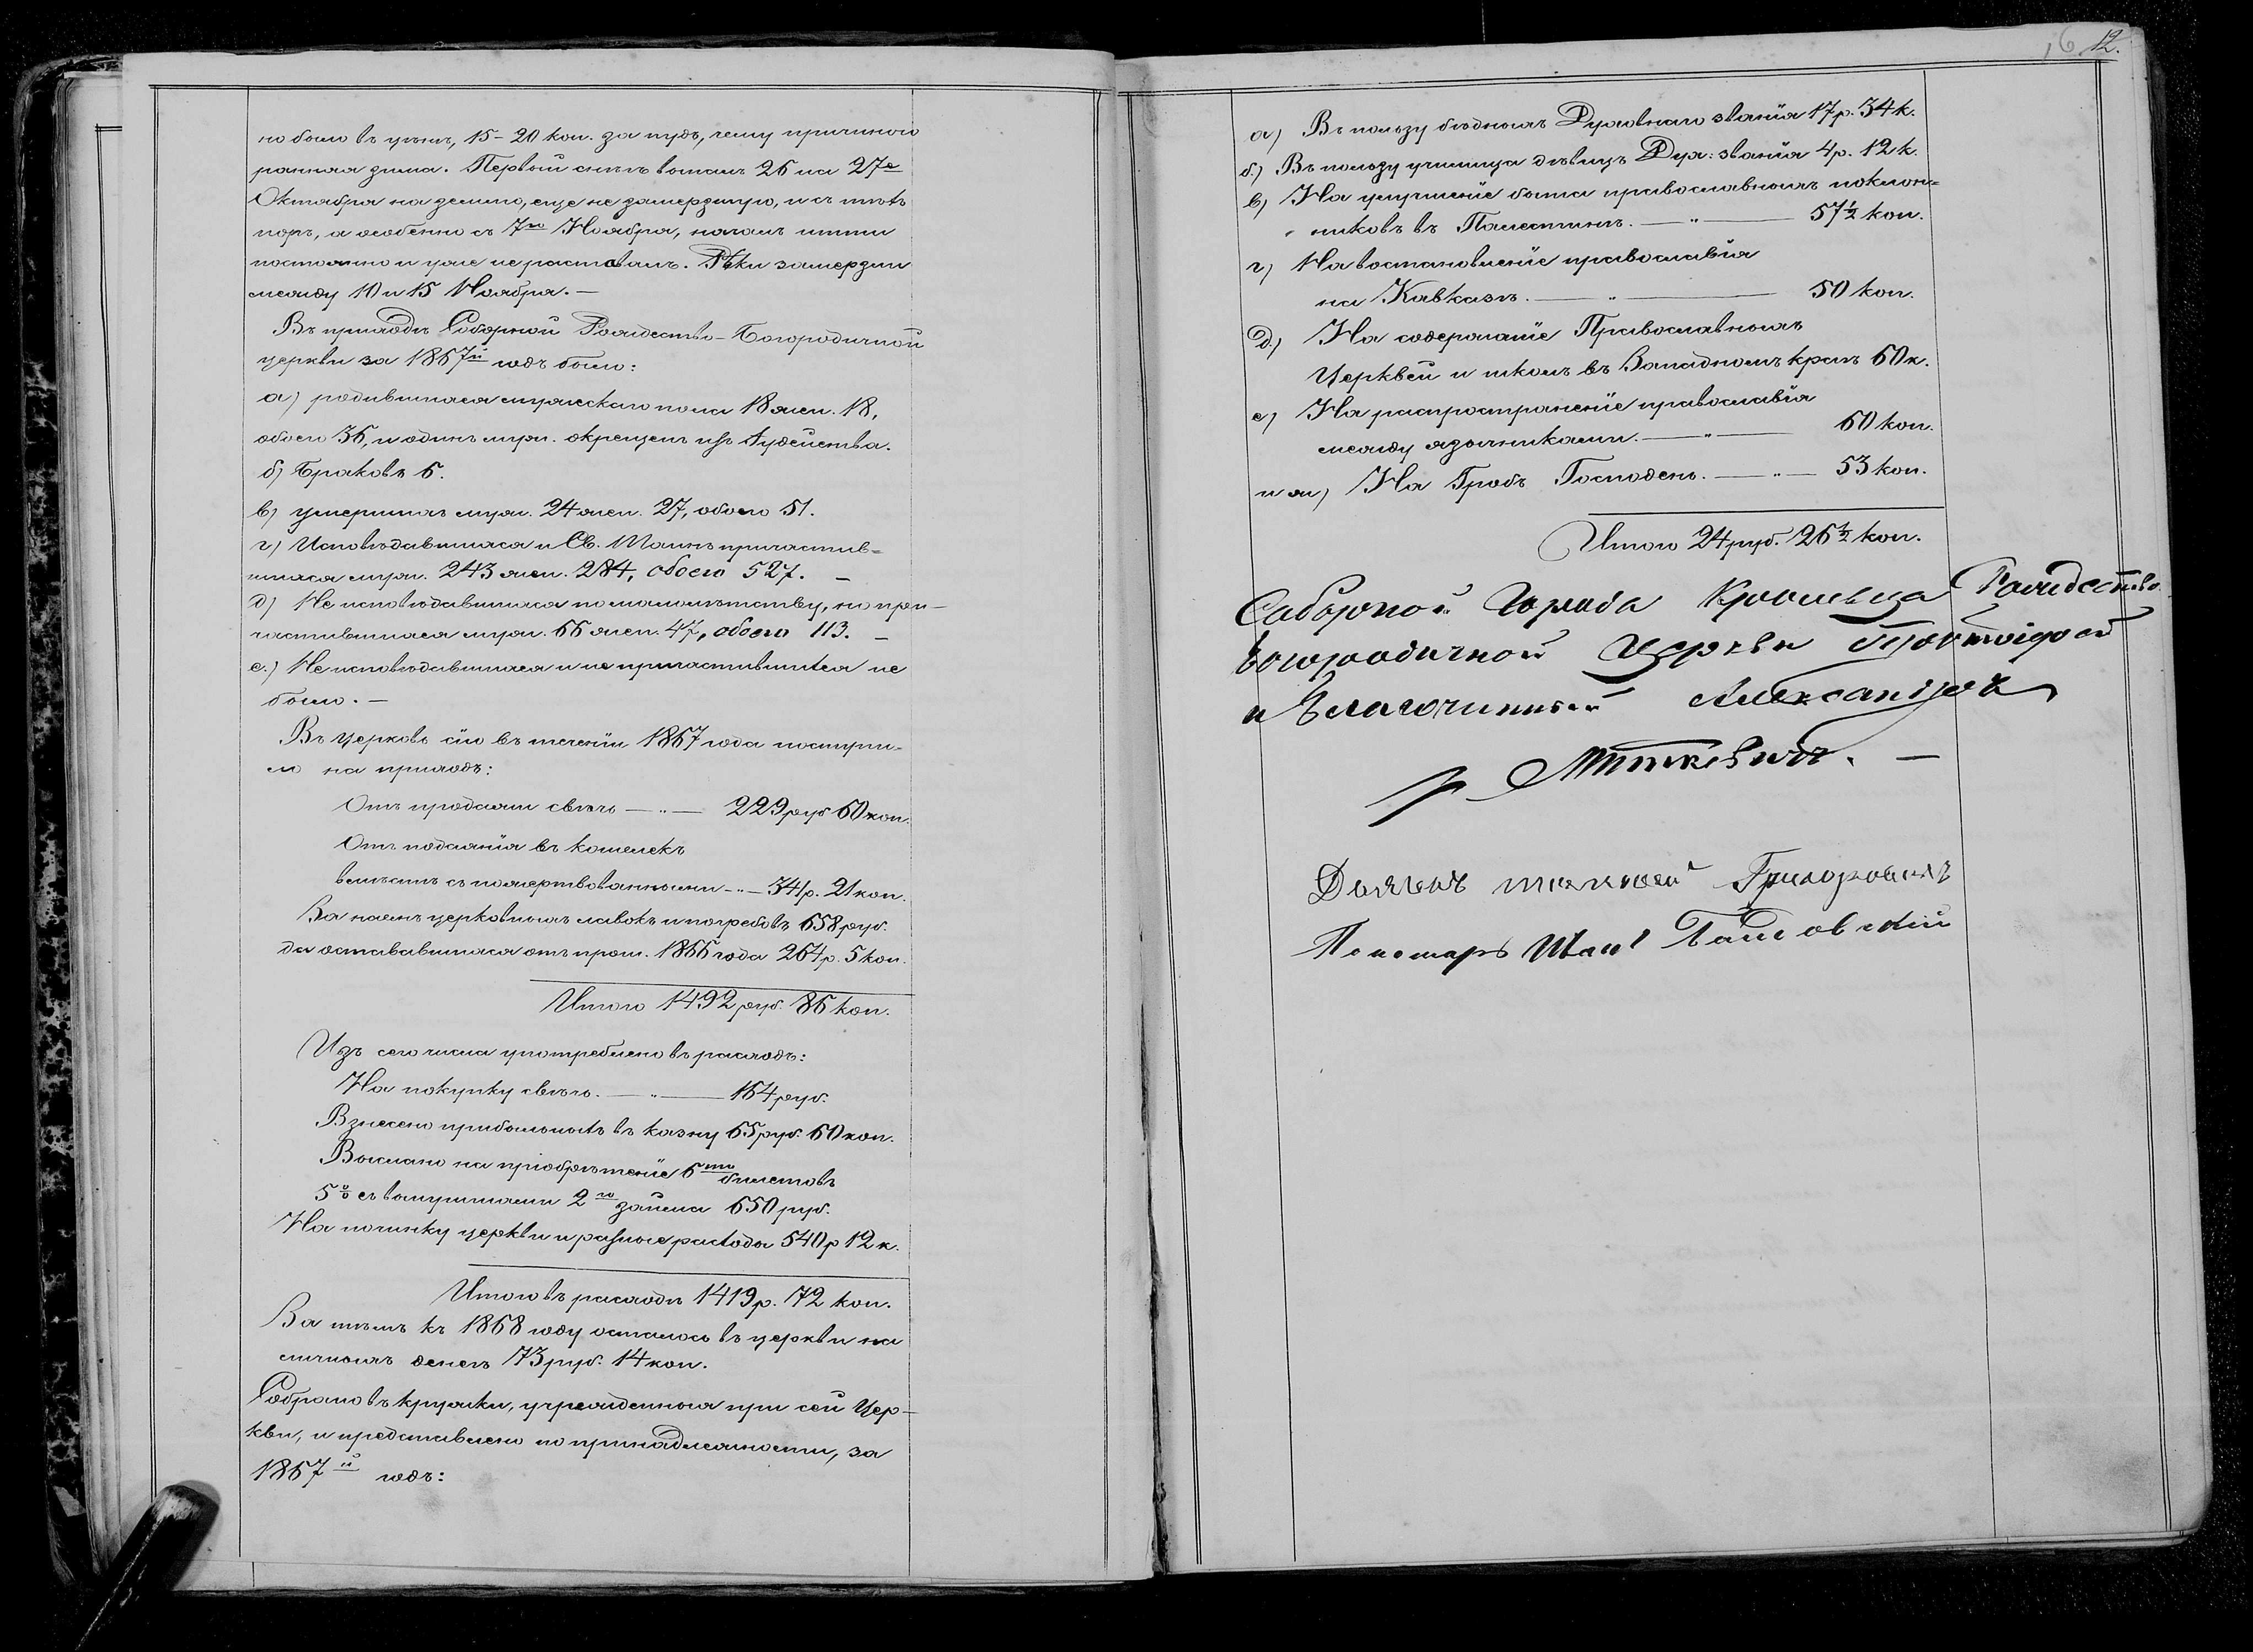 но было въ цѣнѣ, 15-20 коп. за пудъ, чему причиною
ранняя зима. Первый снѣгъ выпалъ 26 на 27е
Октября на землю, еще не замерзшую, и съ тѣхъ
поръ, а особенно съ 7го Ноября, началъ итти
постоянно и уже не растовалъ. Рѣки замерзли
между 10 и 15 Ноября. —
Въ приходѣ Соборной Рождество-Богородичной
церкви за 1867й годъ было:
а) родившихся мужескаго пола 18 жен. 18,
обоего 36, и одинъ муж. окрещенъ изъ Іудейства.
б) Браковъ 6.
в) умершихъ муж. 24 жен. 27, обоего 51.
г) Исповѣдавшихся и Св. Таинъ причастив=
шихся муж. 243 жен. 284, обоего 527. —
д) Не исповѣдавшихся по малолѣтству, но при-
частившихся муж. 66 жен. 47, обоего 113. —
е.) Не исповѣдавшихся и не причастившихся не
было. —
Въ Церковь сію въ теченіи 1867 года поступи=
ло на приходъ:
Отъ продажи свѣчъ — „ — 229 руб 60 коп.
Отъ подаянія въ кошелекъ
вмѣстѣ съ пожертвованными - „ - 341 р. 21 коп.
За наемъ церковныхъ лавокъ и погребовъ 658 руб.
да остававшихся отъ прош. 1866 года 264 р. 5 коп.
Итого 1492 руб. 86 коп.
Изъ сего числа употреблено въ расходъ:
На покупку свѣчъ. — „ — 164 руб.
Взнесено прибыльныхъ въ казну 65 руб. 60 коп.
Выслано на пріобрѣтеніе 6ти билетовъ
5% съ выигрышами 2го займа 650 руб.
На починку церкви и разные расходы 540 р 12 к.
Итого въ расходѣ 1419 р. 72 коп.
За тѣмъ къ 1868 году осталось въ церкви на
личныхъ денегъ 73 руб. 14 коп.
Собрано въ кружки, учрежденныя при сей Цер-
кви, и представлено по принадлежности, за
1867й годъ:
16 12.
а) Въ пользу бѣдныхъ Духовнаго званія 17 р. 34 к.
б.) Въ пользу училища дѣвицъ Дух: званія 4 р. 12 к.
в) На улучшеніе быта православныхъ поклон=
никовъ въ Палестинѣ. — „ — 57 1/2 коп.
г) На востановленіе православія
на Кавказѣ. — „ — 50 коп.
д.) На содержаніе Православныхъ
Церквей и школъ въ Западномъ краѣ 60 к.
е) На распространеніе православія
между язычниками. — „ — 60 коп.
и ж) На Гробъ Господень. — „ — 53 коп.
Итого 24 руб. 26 1/2 коп.
Соборной города Кролевца Рождество
Богородичной Церкви Протоіерей
и Благочинный Александръ
Миткевичъ. —
Дьяконъ Григоровичъ
Пономарь Иванъ